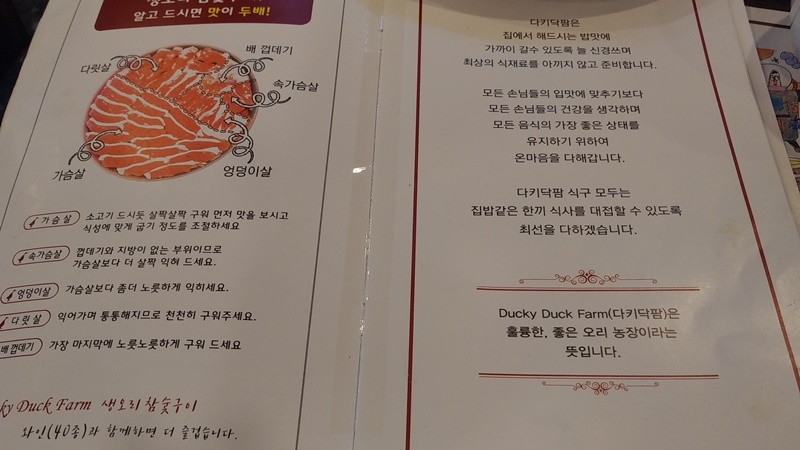 알고 드시면 맛이 두배!
배 껍데기
다릿살
속가슴살
가슴살
엉덩이살
가슴살 소고기 드시듯 살짝살짝 구워 먼저 맛을 보시고
식성에 맞게 굽기 정도를 조절하세요
속가슴살 껍데기와 지방이 없는 부위이므로
가슴살보다 더 살짝 익혀 드세요.
엉덩이살 가슴살보다 좀더 노릇하게 익히세요.
다릿살 익어가며 통통해지므로 천천히 구워주세요.
배 껍데기 가장 마지막에 노릇노릇하게 구워 드세요
ky Duck Farm 생오리 참숯구이
와인(40종)과 함께하면 더 즐겁습니다.
다키닥팜은
집에서 해드시는 밥맛에
가까이 갈수 있도록 늘 신경쓰며
최상의 식재료를 아끼지 않고 준비합니다.
모든 손님들의 입맛에 맞추기보다
모든 손님들의 건강을 생각하며
모든 음식의 가장 좋은 상태를
유지하기 위하여
온마음을 다해갑니다.
다키닥팜 식구 모두는
집밥같은 한끼 식사를 대접할 수 있도록
최선을 다하겠습니다.
Ducky Duck Farm(다키닥팜)은
훌륭한, 좋은 오리 농장이라는
뜻입니다.